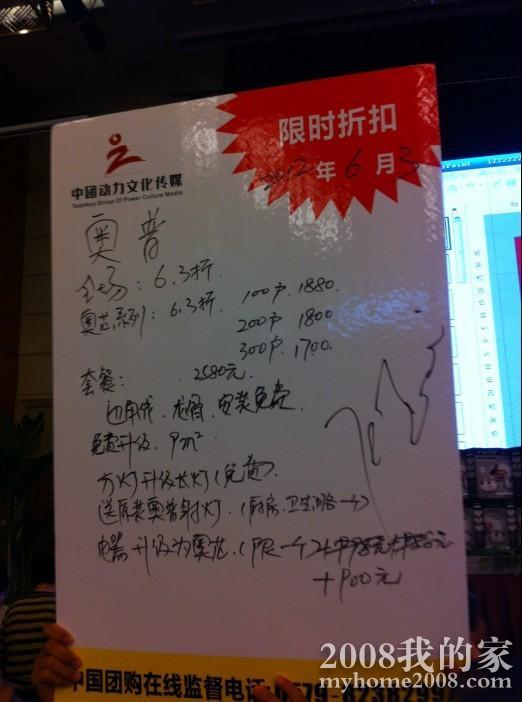 限时折扣
2012年6月3
中团动力文化传媒
Teambuy Group Of Power Culture Media
奥普
全场：6.3折.
奥芯系列：6.3折. 100户. 1880.
200户 1800
300户. 1700.
套餐： 2580元.
边角线. 龙骨. 安装免费
免费升级. 9m²
方灯升级长灯(免费).
送原装奥普射灯.(厨房.卫生间各一个)
电器升级为奥芯.(限一个)
+900元
中国团购在线监督电话:0579-82382997
2008我的家
myhome2008.com